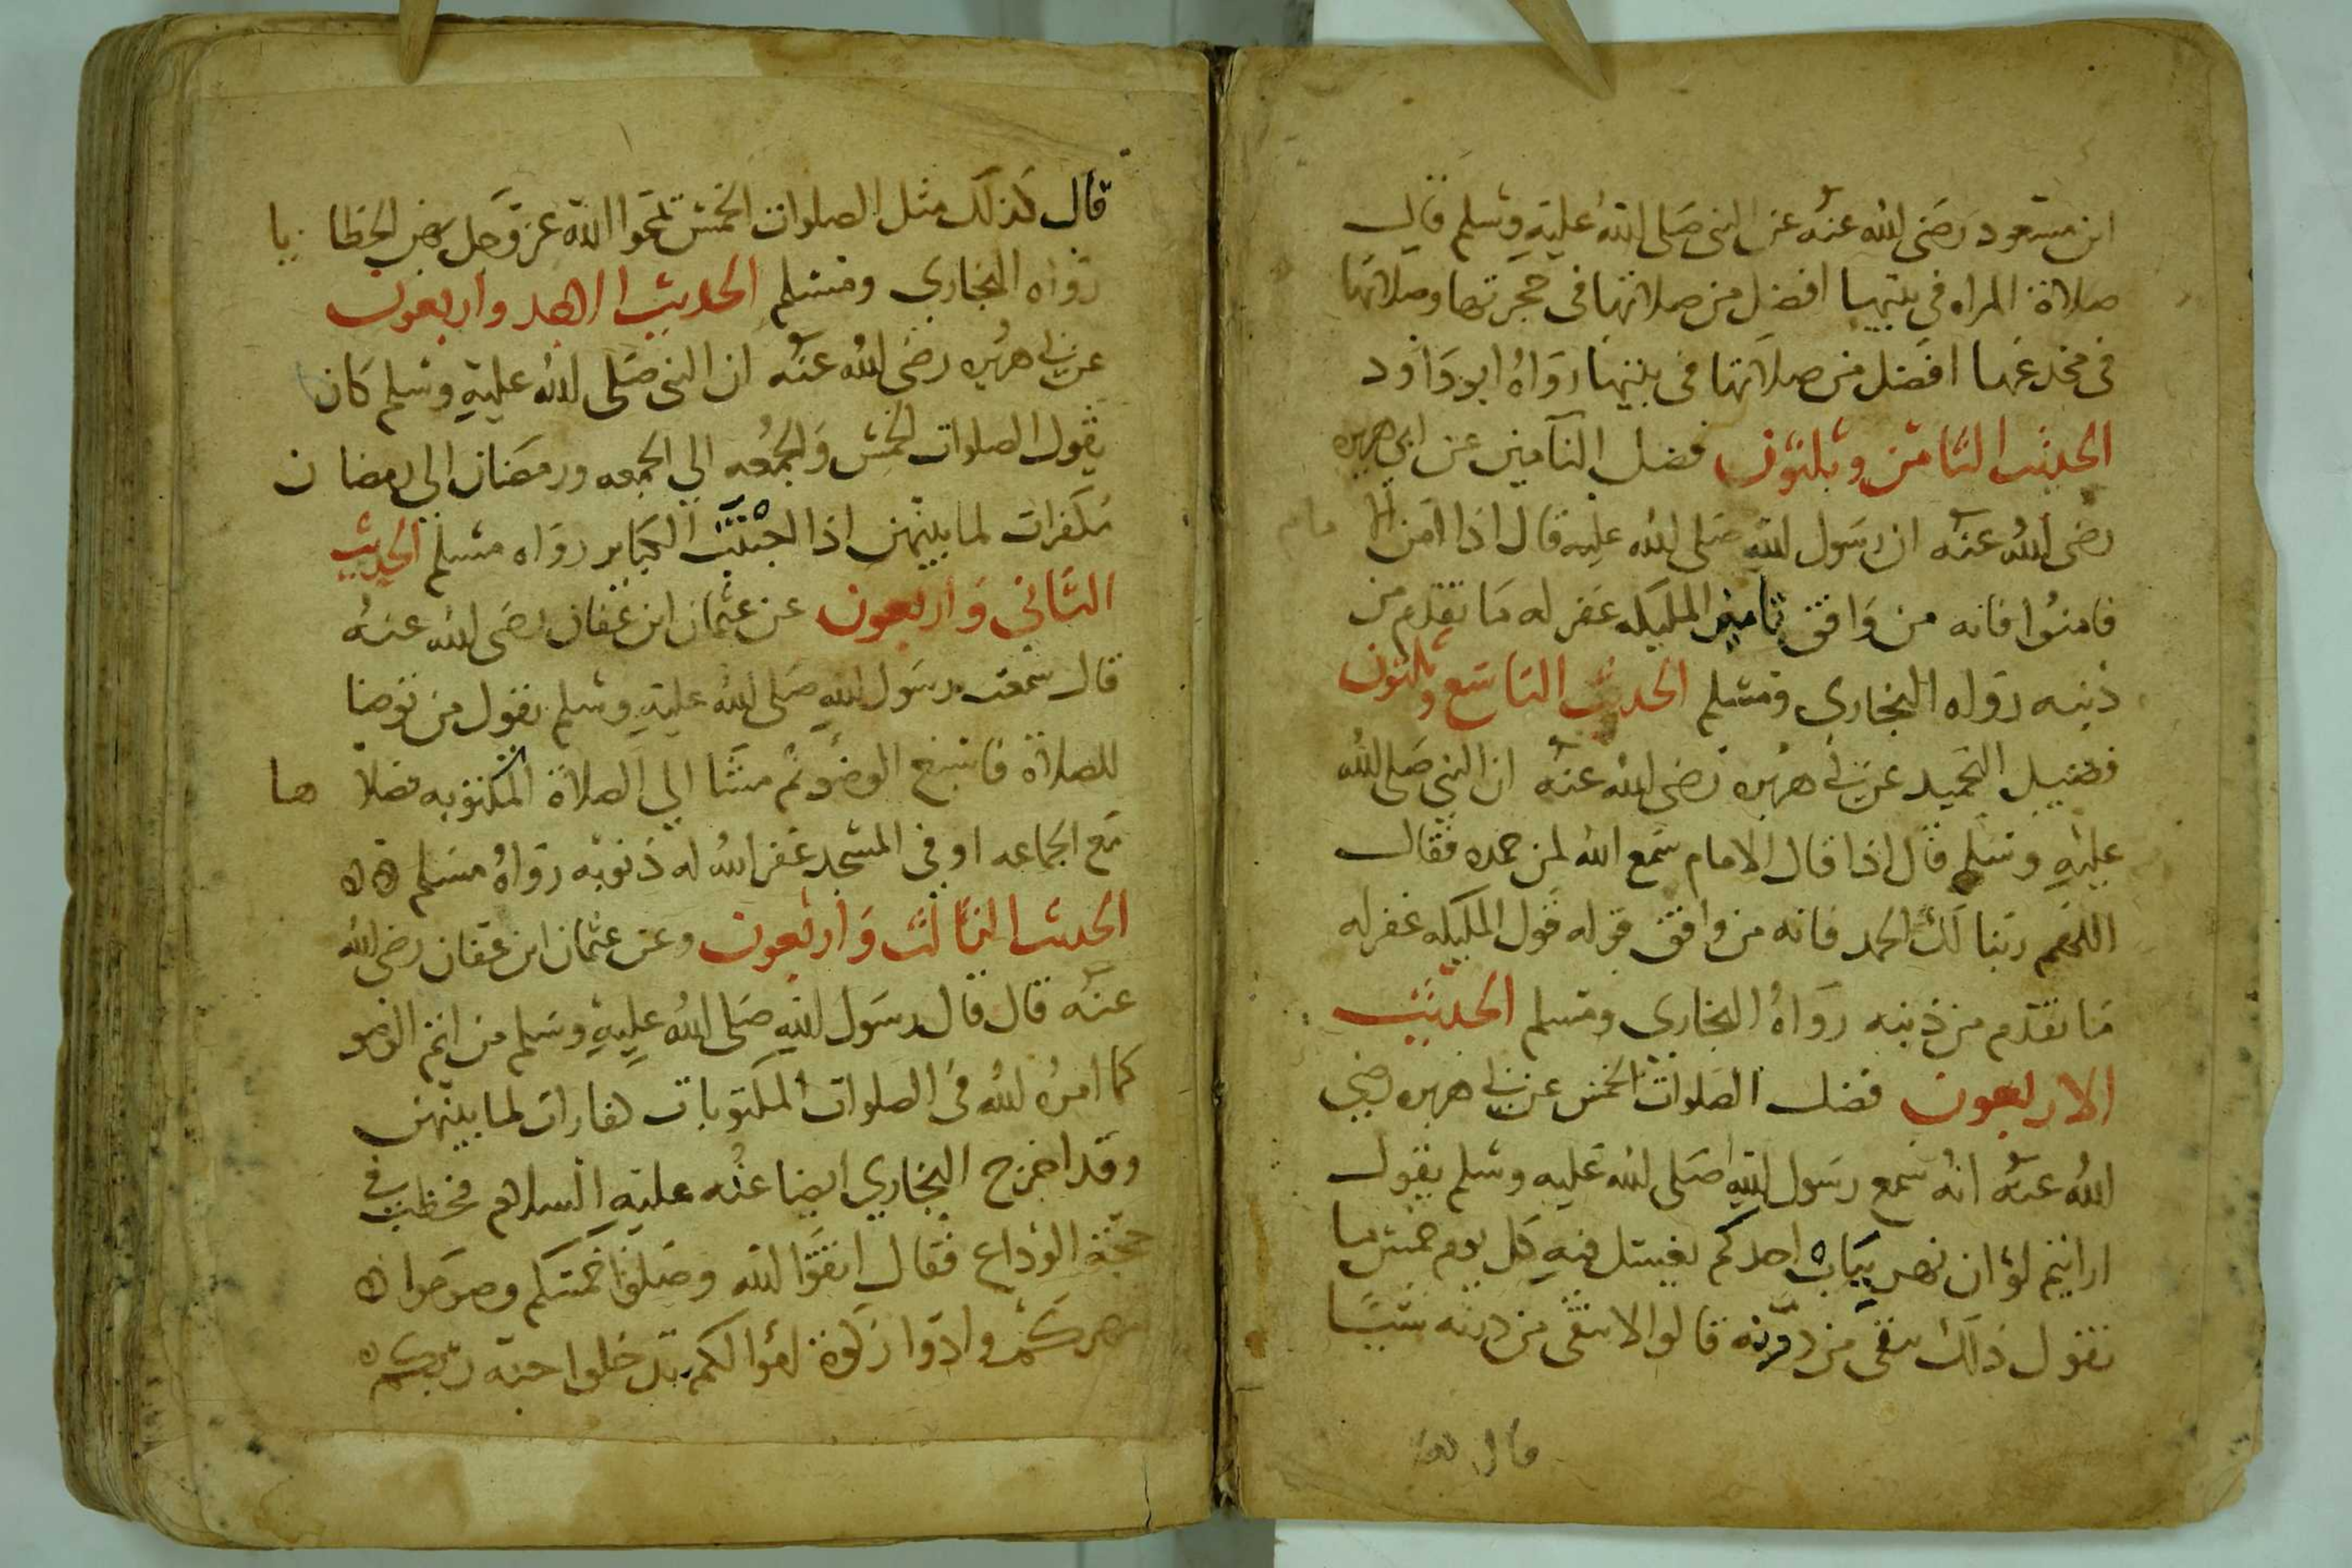 ابن مسعود رضى الله عنه عن النبى صلى الله عليه وسلم قال
صلاة المراه فى بيتها افضل من صلاتها فى حجرتها وصلاتها
فى مخدعها افضل من صلاتها فى بيتها رواه ابو داود
الحديث الثامن وثلثون فضل التامين عن ابى هريره
رضى الله عنه ان رسول الله صلى الله عليه قال اذا امن الامام
فامنوا فانه من وافق تامين المليكه غفر له ما تقدم من
ذنبه رواه البخارى ومسلم الحديث التاسع وثلثون
فضيل التحميد عن ابى هريره رضى الله عنه ان النبى صلى الله
عليه وسلم قال اذا قال الامام سمع الله لمن حمده فقال
اللهم ربنا لك الحمد فانه من وافق قوله قول المليكه غفر له
ما تقدم من ذنبه رواه البخارى ومسلم الحديث
الاربعون فضل الصلوات الخمس عن ابى هريره رضى
الله عنه انه سمع رسول الله صلى الله عليه وسلم يقول
ارايتم لو ان نهر بباب احدكم يغيتسل فيه كل يوم خمس ما
تقول ذلك يبقى من درنه قالوا لا يبقى من درنه شيا
قال كذلك
قال كذلك مثل الصلوات الخمس تمحوا الله عز وجل بهن الخطايا
رواه البخارى ومسلم الحديث الاحد واربعون
عن ابى هريره رضى الله عنه ان النبى صلى الله عليه وسلم كان
يقول الصلوات الخمس والجمعه الى الجمعه ورمضان الى رمضان
مكفرات لما بينهن اذا اجتنبت الكباير رواه مسلم الحديث
الثانى واربعون عن عثمان ابن عفان رضى الله عنه
قال سمعت رسول الله صلى الله عليه وسلم يقول من توضا
للصلاة فاسبغ الوضو ثم مشا الى الصلاة المكتوبه فصلاها
مع الجماعه او فى المسجد غفر الله له ذنوبه رواه مسلم
الحديث الثالث واربعون وعن عثمان ابن عفان رضى الله
عنه قال قال رسول الله صلى الله عليه وسلم من اتم الوضو
كما امره الله فى الصلوات المكتوبات كفارات لما بينهن
وقد اخرج البخارى ايضا عنه عليه السلام فخطب فى
حجة الوداع فقال اتقوا الله وصلوا خمسكم وصوموا
شهركم وادوا زكوة اموالكم تدخلوا جنه ربكم